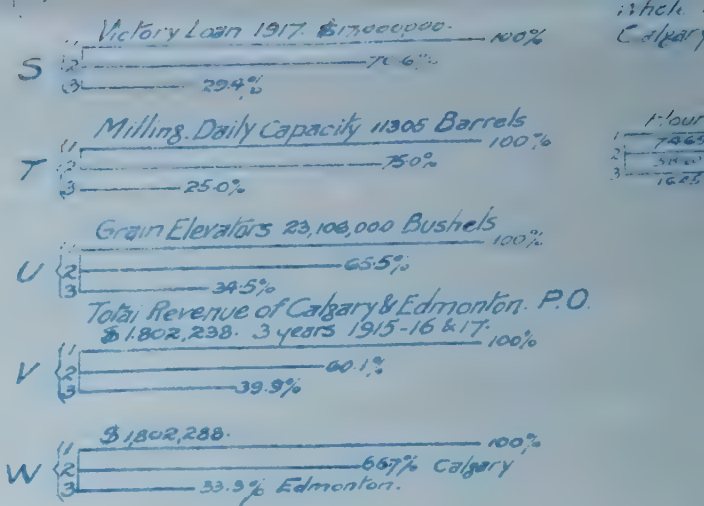 Victory Loan 1917.
1 100%
S 2 70.6%
3 29.4%
Milling. Daily Capacity 11305 Barrels
1 100%
T 2 75.0%
3 25.0%
Grain Elevators 23,106,000 Bushels
1 100%
U 2 65.5%
3 34.5%
Total Revenue of Calgary & Edmonton. P.O.
$1.802,238. 3 years 1915-16 & 17.
1 100%
V 2 60.1%
3 39.9%
$1,802,288.
1 100%
W 2 66.7% Calgary
3 33.3% Edmonton.
Calgary
Flour
1 7465
2
3 1625